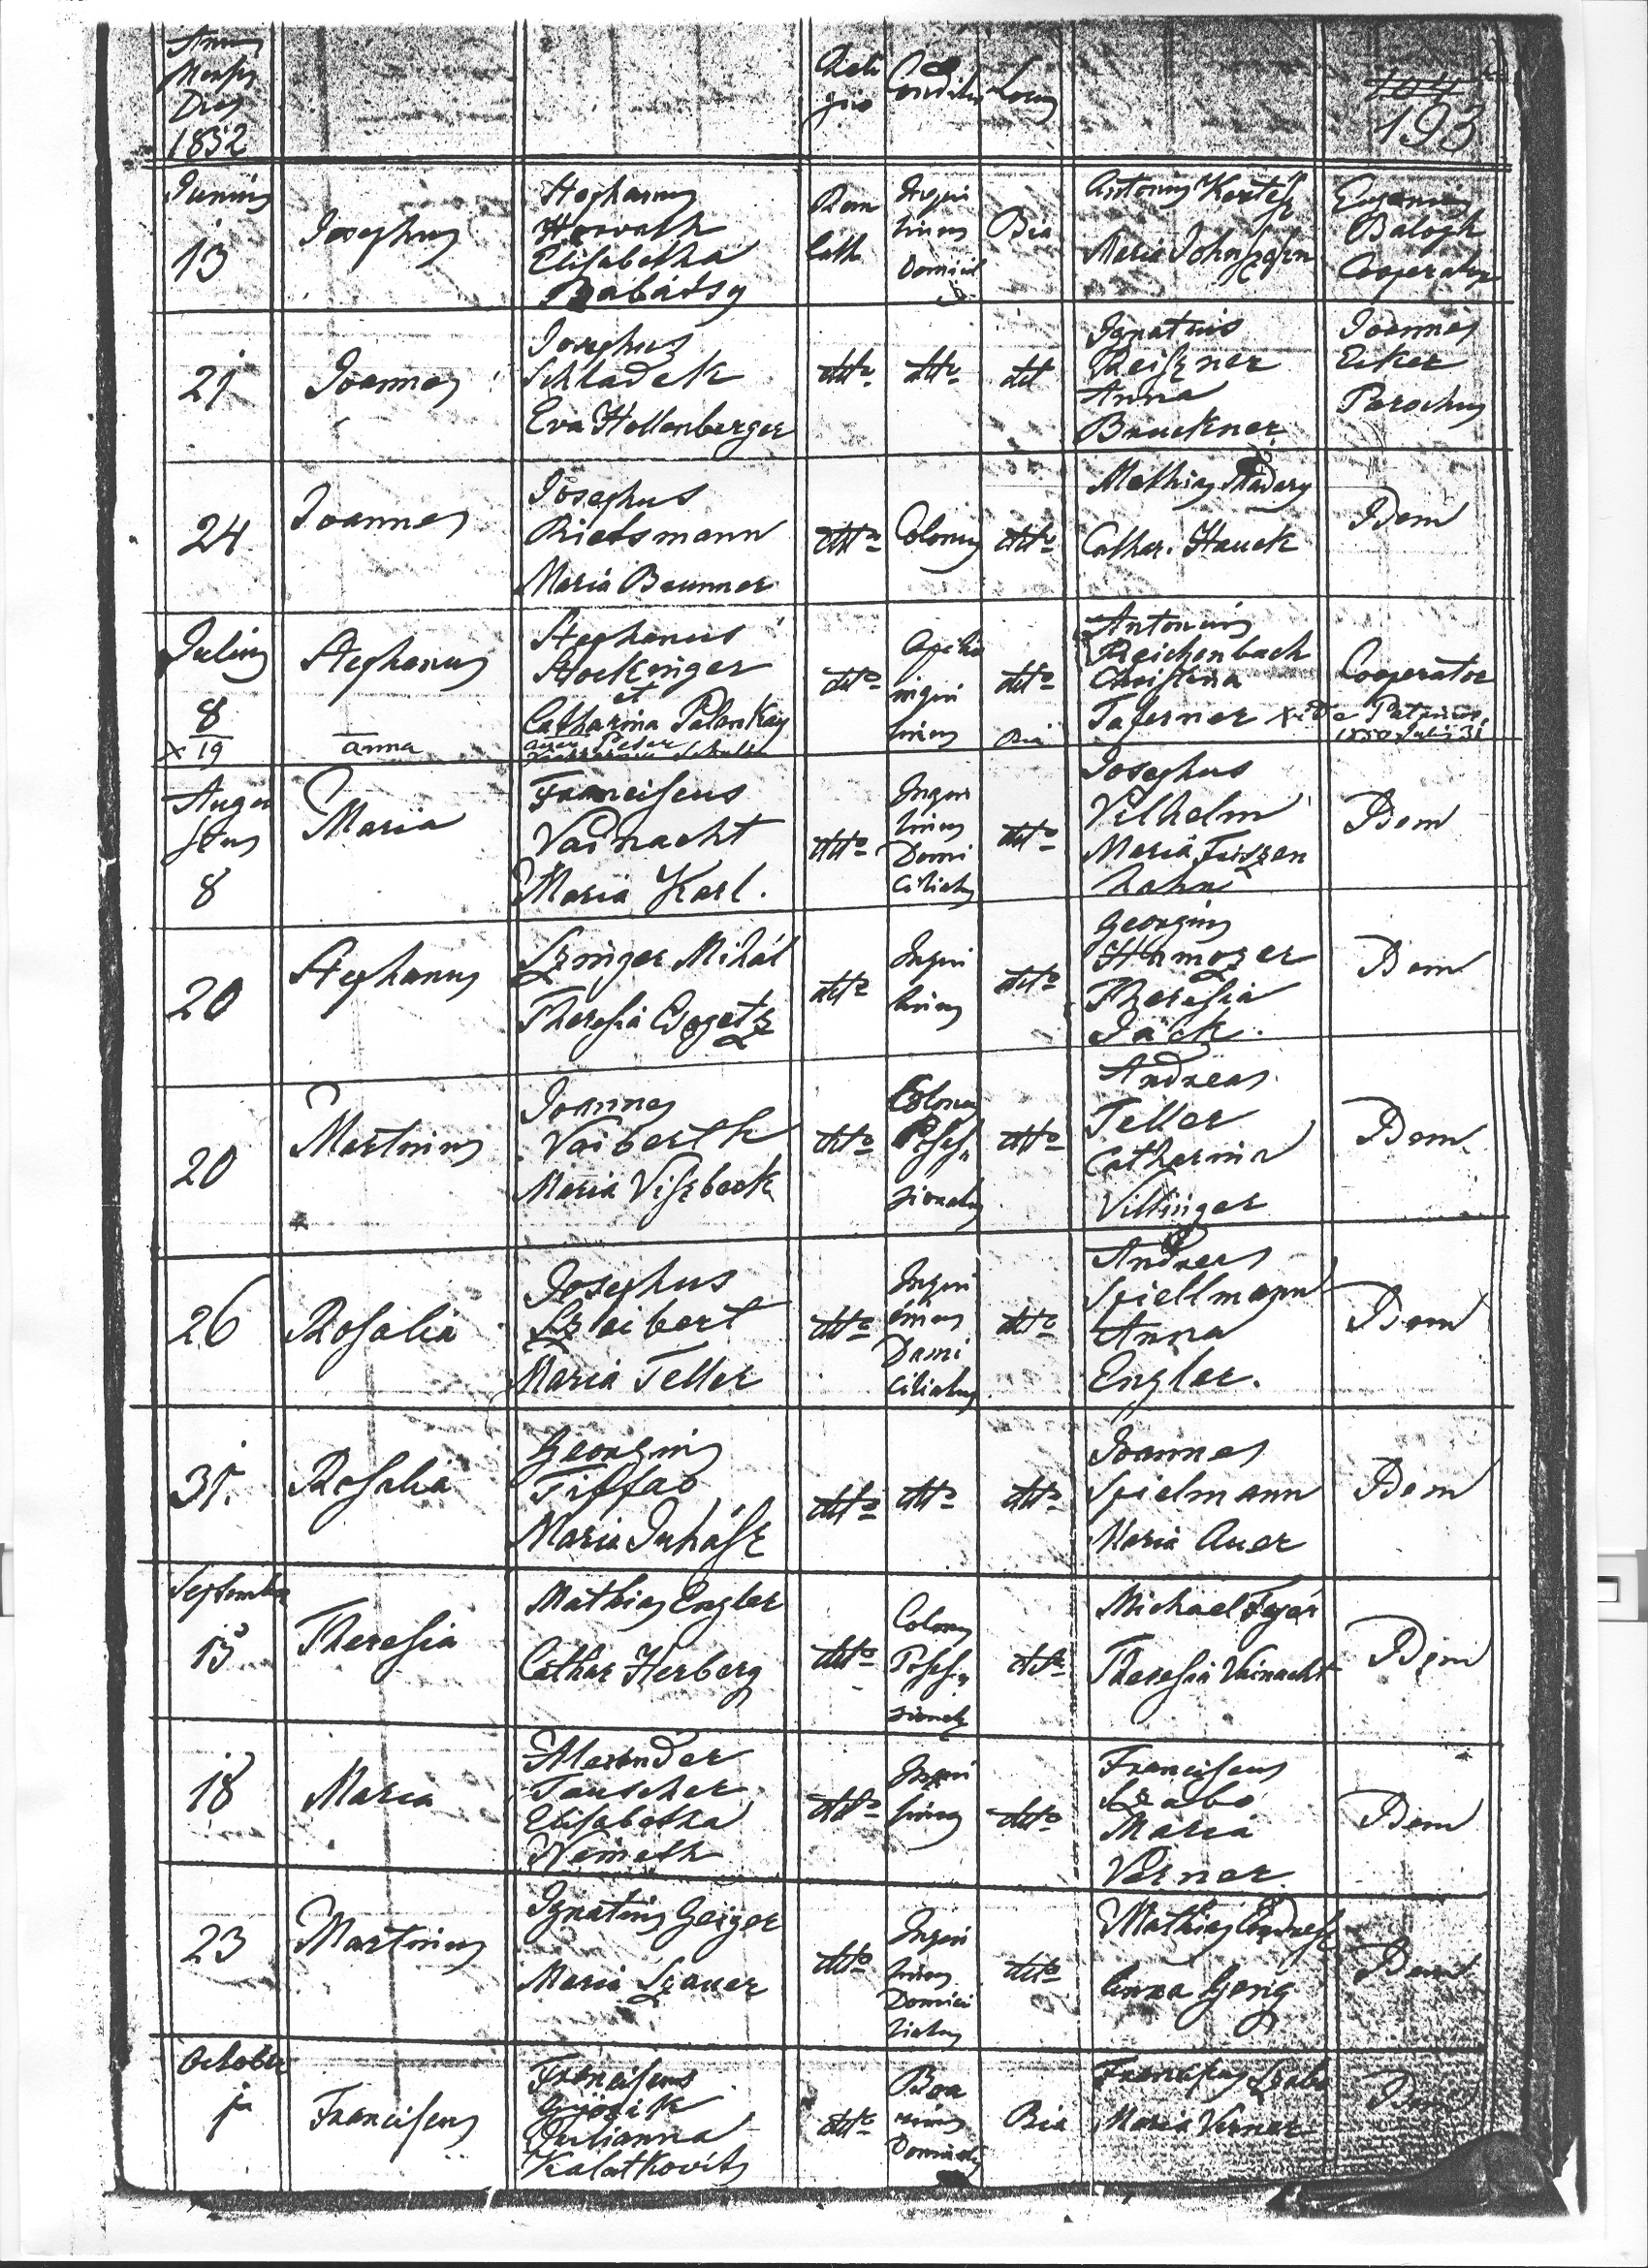 Annus
Mensis
Dies
1852
Reli
gio
Conditio
Locus
104
193
Junius
13
Josephus
Stephanus
Horvath
Elisabetha
Babátsy
Rom
Cath
Inqui
linus
Domicil
Bia
Antonius Kertész
Maria
Eugenius
Balogh
Cooperator
21
Joannes
Josephus
Schladek
Eva Hollenberger
dtto
dtto
dtt
Ignatius
Reiszner
Anna
Bruckner
Joannes
Eiker
Parochus
24
Joannes
Josephus
Rietsmann
Maria Brunner
dtto
Colonus
dtto
Mathias Madary
Cathar. Hauck
Idem
Julius
8
x 19
Stephanus
Anna
Stephanus
Stockinger
et
Catharina Palenkay
Peter
dtto
Opilio
inqui
linus
dtto
Bia
Antonius
Reichenbach
Christina
Taferner
Cooperator
Augu
stus
8
Maria
Franciscus
Vainacht
Maria Karl.
dtto
Inqui
linus
Domi
ciliatus
dtto
Josephus
Vilhelm
Maria Friszen
hahn
Idem
20
Stephanus
Szinger Mihál
Theresia
dtto
Inqui
linus
dtto
Georgius
Theresia
Jäck.
Idem
20
Martinus
Joannes
Vaiberth
Maria Viszbeck
dtto
Colonus
Posses
sionatus
dtto
Andreas
Teller
Catharina
Villinger
Idem
26
Rosalia
Josephus
Szleibert
Maria Teller
dtto
Inqui
linus
Domi
ciliatus
dtto
Andreas
Spiellmann
Anna
Engler.
Idem
31.
Rosalia
Georgius
Tiffao
Maria Juhász
dtto
dtto
dtto
Joannes
Spielmann
Maria Auer
Idem
September
13
Theresia
Mathias Engler
Cathar Herberg
dtto
Colonus
Posses
sionatus
dtto
Michael Fejér
Theresia Vainacht
Idem
18
Maria
Alexander
Tauscher
Elisabetha
Németh
dtto
Inqui
linus
dtto
Franciscus
Szabo
Maria
Verner.
Idem
23
Martinus
Ignatius Geiger
Maria Szauer
dtto
Inqui
linus
Domici
liatus
dtto
Mathias Endresz
Anna Gerig
Idem
October
Franciscus
Franciscus
Julianna
Kalatkovits
dtto
Bia
Franciscus Szabo
Maria Verner
Idem